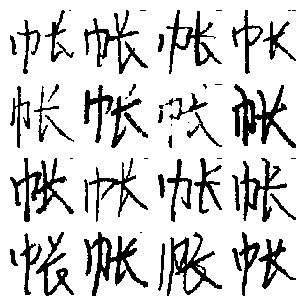 帐帐帐帐
帐帐帐帐
帐帐帐帐
帐帐帐帐